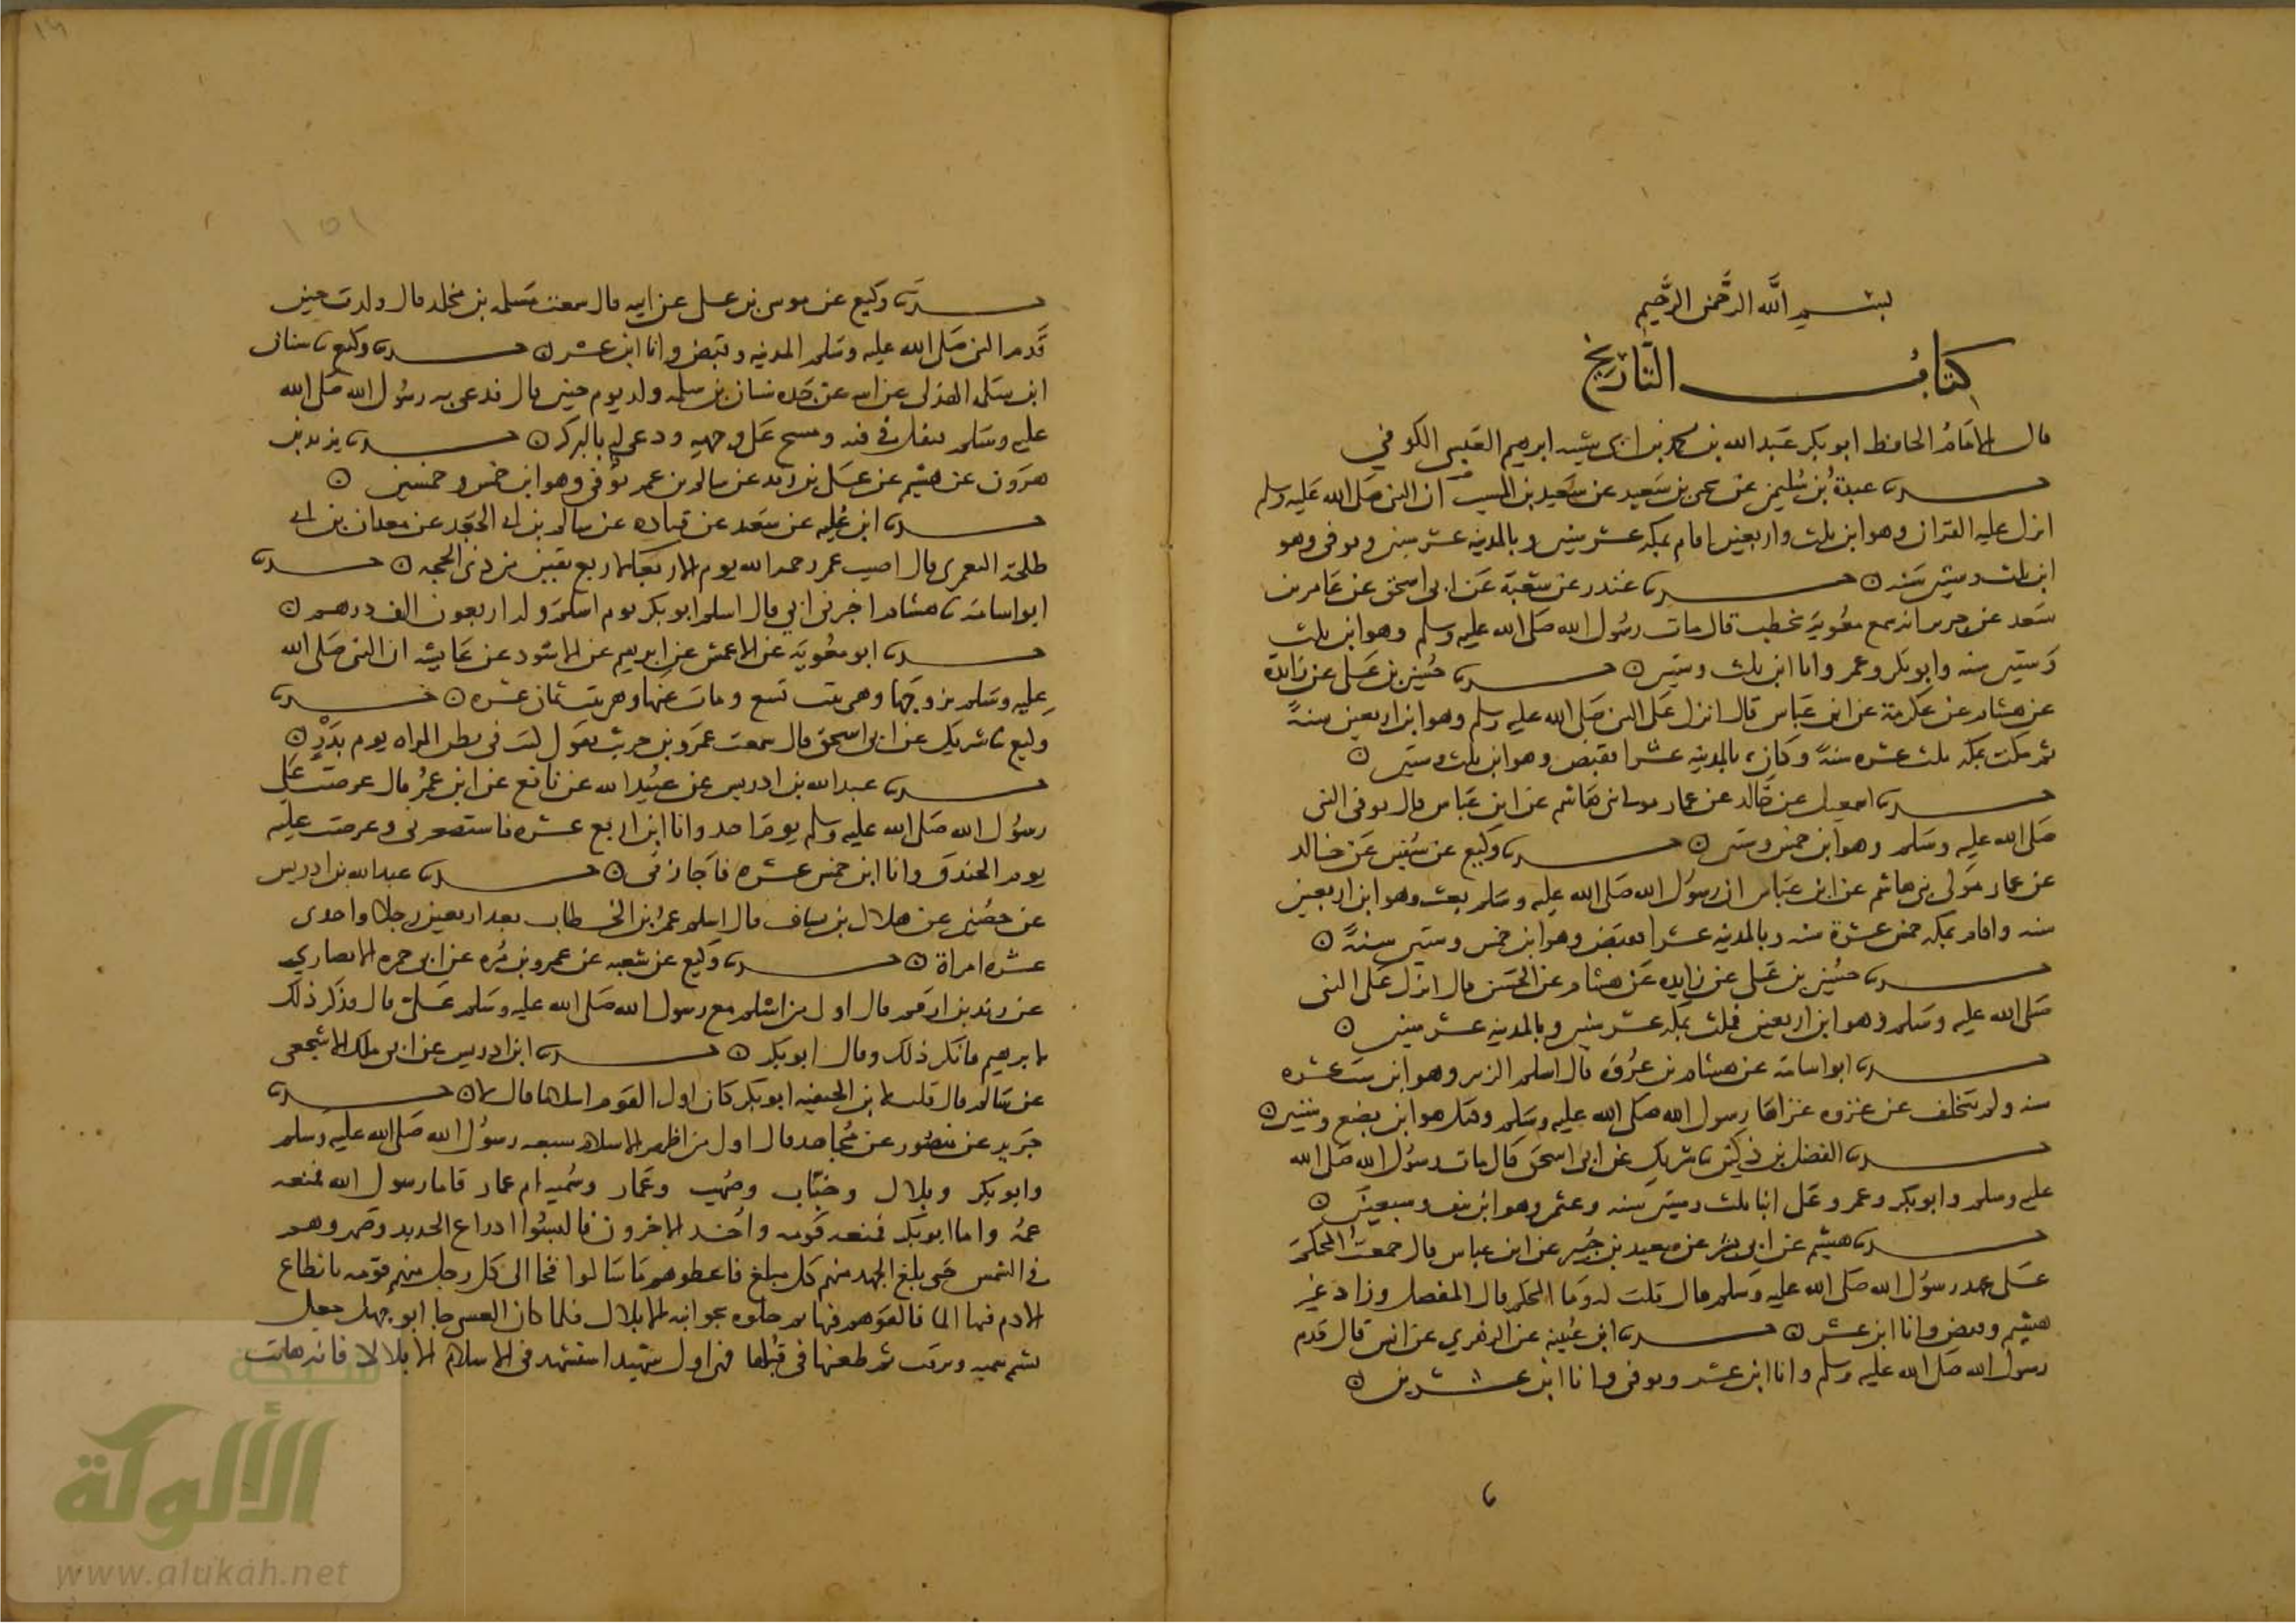 بسم الله الرحمن الرحيم
كتاب التاريخ
قال الامام الحافظ ابو بكر عبد الله بن محمد بن ابي شيبه ابرهيم العبسي الكوفي
حدثنا عبدة بن سليمن عن يحيى بن سعيد عن سعيد بن المسيب ان النبي صلى الله عليه وسلم
انزل عليه القران وهو ابن ثلث واربعين اقام بمكه عشر سنين وبالمدينه عشر سنين وتوفي وهو
ابن ثلث وستين سنه ه حدثنا غندر عن شعبة عن ابي اسحق عن عامر بن
سعد عن جرير انه سمع معوية يخطب قال مات رسول الله صلى الله عليه وسلم وهو ابن ثلث
وستين سنه وابو بكر وعمر وانا ابن ثلث وستين ه حدثنا حسين بن علي عن زايدة
عن هشام عن عكرمة عن ابن عباس قال انزل على النبي صلى الله عليه وسلم وهو ابن اربعين سنة
ثم مكث بمكه ثلث عشره سنة وكان بالمدينه عشرا فقبض وهو ابن ثلث وستين ه
حدثنا اسمعيل عن خالد عن عمار مولى بني هاشم عن ابن عباس قال توفي النبي
صلى الله عليه وسلم وهو ابن خمس وستين ه حدثنا وكيع عن سفين عن خالد
عن عمار مولى بني هاشم عن ابن عباس ان رسول الله صلى الله عليه وسلم بعث وهو ابن اربعين
سنه واقام بمكه خمس عشرة سنه وبالمدينه عشرا فقبض وهو ابن خمس وستين سنة ه
حدثنا حسين بن علي عن زايده عن هشام عن الحسن قال انزل على النبي
صلى الله عليه وسلم وهو ابن اربعين فمكث بمكه عشر سنين وبالمدينه عشر سنين ه
حدثنا ابو اسامة عن هشام بن عروة قال اسلم الزبير وهو ابن ست عشره
سنه ولم يتخلف عن غزوه غزاها رسول الله صلى الله عليه وسلم وقتل وهو ابن بضع وستين ه
حدثنا الفضل بن دكين ثنا شريك عن ابي اسحق قال مات رسول الله صلى الله
عليه وسلم وابو بكر وعمر وعلي ابنا ثلث وستين سنه وعثمن وهو ابن نيف وسبعين ه
حدثنا هشيم عن ابي بشر عن سعيد بن جبير عن ابن عباس قال جمعت المحكم
على عهد رسول الله صلى الله عليه وسلم قال قلت له وما المحكم قال المفصل وزاد غير
هشيم وقبض وانا ابن عشر ه حدثنا ابن عيينه عن الزهري عن انس قال قدم
رسول الله صلى الله عليه وسلم وانا ابن عشر وتوفي وانا ابن عشرين ه
١٥١
حدثنا وكيع عن موسى بن علي عن ابيه قال سمعت مسلمه بن مخلد قال ولدت حين
قدم النبي صلى الله عليه وسلم المدينه وقبض وانا ابن عشر ه حدثنا وكيع ثنا سنان
ابن سلمه الهذلي عن ابيه عن جده سنان بن سلمه ولد يوم حنين قال فدعى به رسول الله صلى الله
عليه وسلم فتفل في فيه ومسح على وجهه ودعى له بالبركه حدثنا يزيد بن
هرون عن هشيم عن علي بن زيد عن سالم بن عمر توفي وهو ابن خمس وخمسين ه
حدثنا ابن عليه عن سعيد عن قتاده عن سالم بن ابي الجعد عن معدان بن ابي
طلحة اليعمري قال اصيب عمر رحمه الله يوم الاربعا لاربع بقين من ذي الحجه ه حدثنا
ابو اسامة ثنا هشام اخبرني ابي قال اسلم ابو بكر يوم اسلم وله اربعون الف درهم ه
حدثنا ابو معوية عن الاعمش عن ابرهيم عن الاسود عن عايشه ان النبي صلى الله
عليه وسلم تزوجها وهي بنت تسع ومات عنها وهي بنت ثمان عشره ه حدثنا
وكيع ثنا شريك عن ابي اسحق قال سمعت عمرو بن حريث يقول كنت في بطن المراه يوم بدر ه
حدثنا عبد الله بن ادريس عن عبيد الله عن نافع عن ابن عمر قال عرضت على
رسول الله صلى الله عليه وسلم يوم احد وانا ابن اربع عشره فاستصغرني وعرضت عليه
يوم الخندق وانا ابن خمس عشره فاجازني ه حدثنا عبد الله بن ادريس
عن حصين عن هلال بن يساف قال اسلم عمر بن الخطاب بعد اربعين رجلا واحدى
عشره امراة ه حدثنا وكيع عن شعبه عن عمرو بن مره عن ابي حمزه الانصاري
عن زيد بن ارقم قال اول من اسلم مع رسول الله صلى الله عليه وسلم علي قال فذكر ذلك
لابرهيم فانكر ذلك وقال ابو بكر ه حدثنا ابن ادريس عن ابي ملك الاشجعي
عن سالم قال قلت لابن الحنفيه ابو بكر كان اول القوم اسلاما قال لا ه حدثنا
جرير عن منصور عن مجاهد قال اول من اظهر الاسلام سبعه رسول الله صلى الله عليه وسلم
وابو بكر وبلال وخباب وصهيب وعمار وسميه ام عمار فاما رسول الله فمنعه
عمه واما ابو بكر فمنعه قومه واخذ الاخرون فالبسوا ادراع الحديد وصهروهم
في الشمس حتى بلغ الجهد منهم كل مبلغ فاعطوهم ما سالوا فجا الى كل رجل منهم قومه بانطاع
الادم فيها الما فالقوهم فيها ثم حملوه بجوانبه الا بلال فلما كان العشي جا ابو جهل فجعل
يشتم سميه ويرفث ثم طعنها في قبلها فهي اول شهيد استشهد في الاسلام الا بلالا فانه هانت
شبكة
الألوكة
www.alukah.net